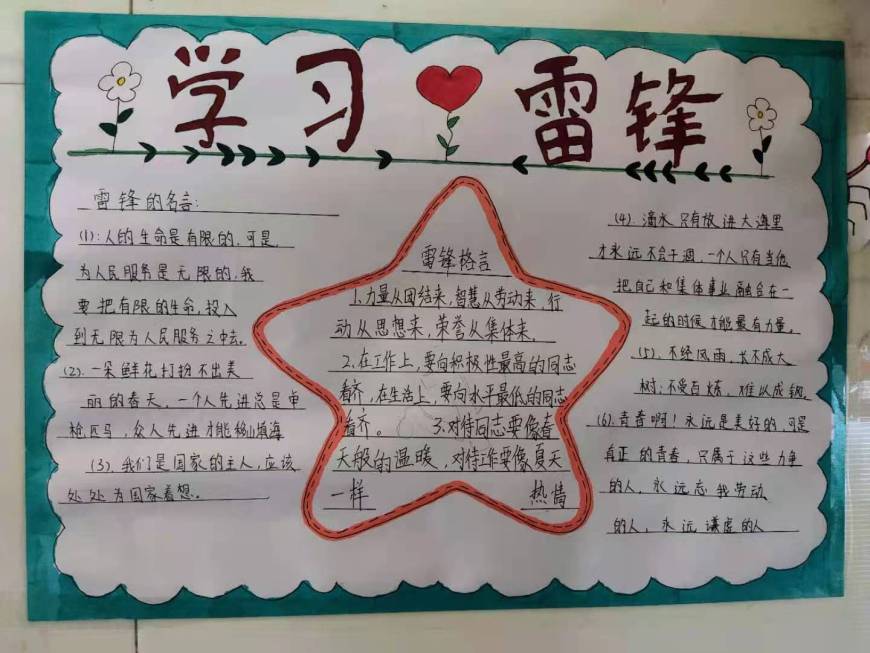 学习雷锋
雷锋的名言:
(1):人的生命是有限的,可是
为人民服务是无限的,我
要把有限的生命,投入
到无限为人民服务之中去。
(2).一朵鲜花打扮不出美
丽的春天,一个人先进总是单
枪匹马,众人先进才能移山填海
(3).我们是国家的主人,应该
处处为国家着想。
雷锋格言
1.力量从团结来,智慧从劳动来,行
动从思想来,荣誉从集体来。
2.在工作上,要向积极性最高的同志
看齐,在生活上,要向水平最低的同志
看齐。 3.对待同志要像春
天般的温暖,对待工作要像夏天
一样 热情
(4).滴水只有放进大海里
才永远不会干涸,一个人只有当他
把自己和集体事业融合在一
起的时候才能最有力量。
(5).不经风雨,长不成大
树;不受百炼,难以成钢。
(6).青春啊!永远是美好的,可是
真正的青春,只属于这些力争
的人,永远忘我劳动
的人,永远谦虚的人